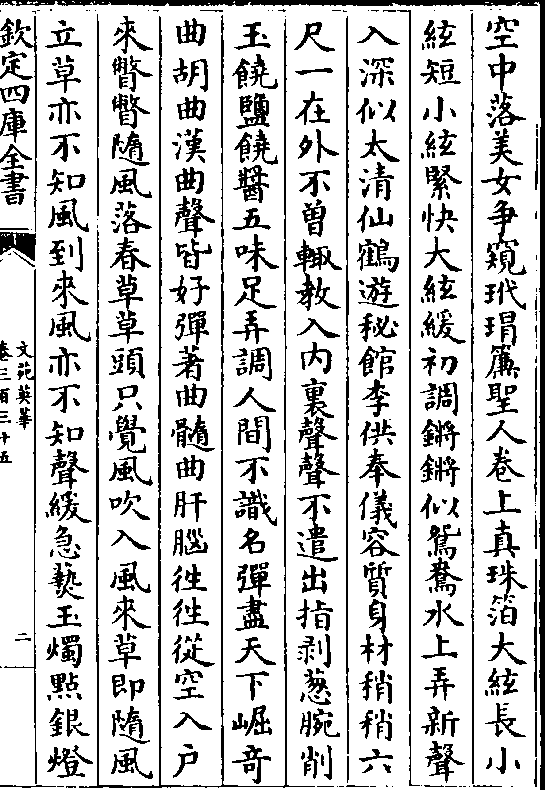 空中落美女争窺玳瑁簾聖人卷上真珠箔大絃長小
絃短小絃緊快大絃緩初調鏘鏘似鴛鴦水上弄新聲
入深似太清仙鶴遊秘館李供奉儀容質身材稍稍六
尺一在外不曽輙教入内裏聲聲不遣出指剥葱腕削
玉饒鹽饒醬五味足弄調人間不識名彈盡天下崛竒
曲胡曲漢曲聲皆好彈著曲髓曲肝腦徃徃從空入户
來瞥瞥隨風落春草草頭只覺風吹入風來草即隨風
立草亦不知風到來風亦不知聲緩急爇玉燭點銀燈
欽定四庫全書
文苑英華
卷三百三十五
二